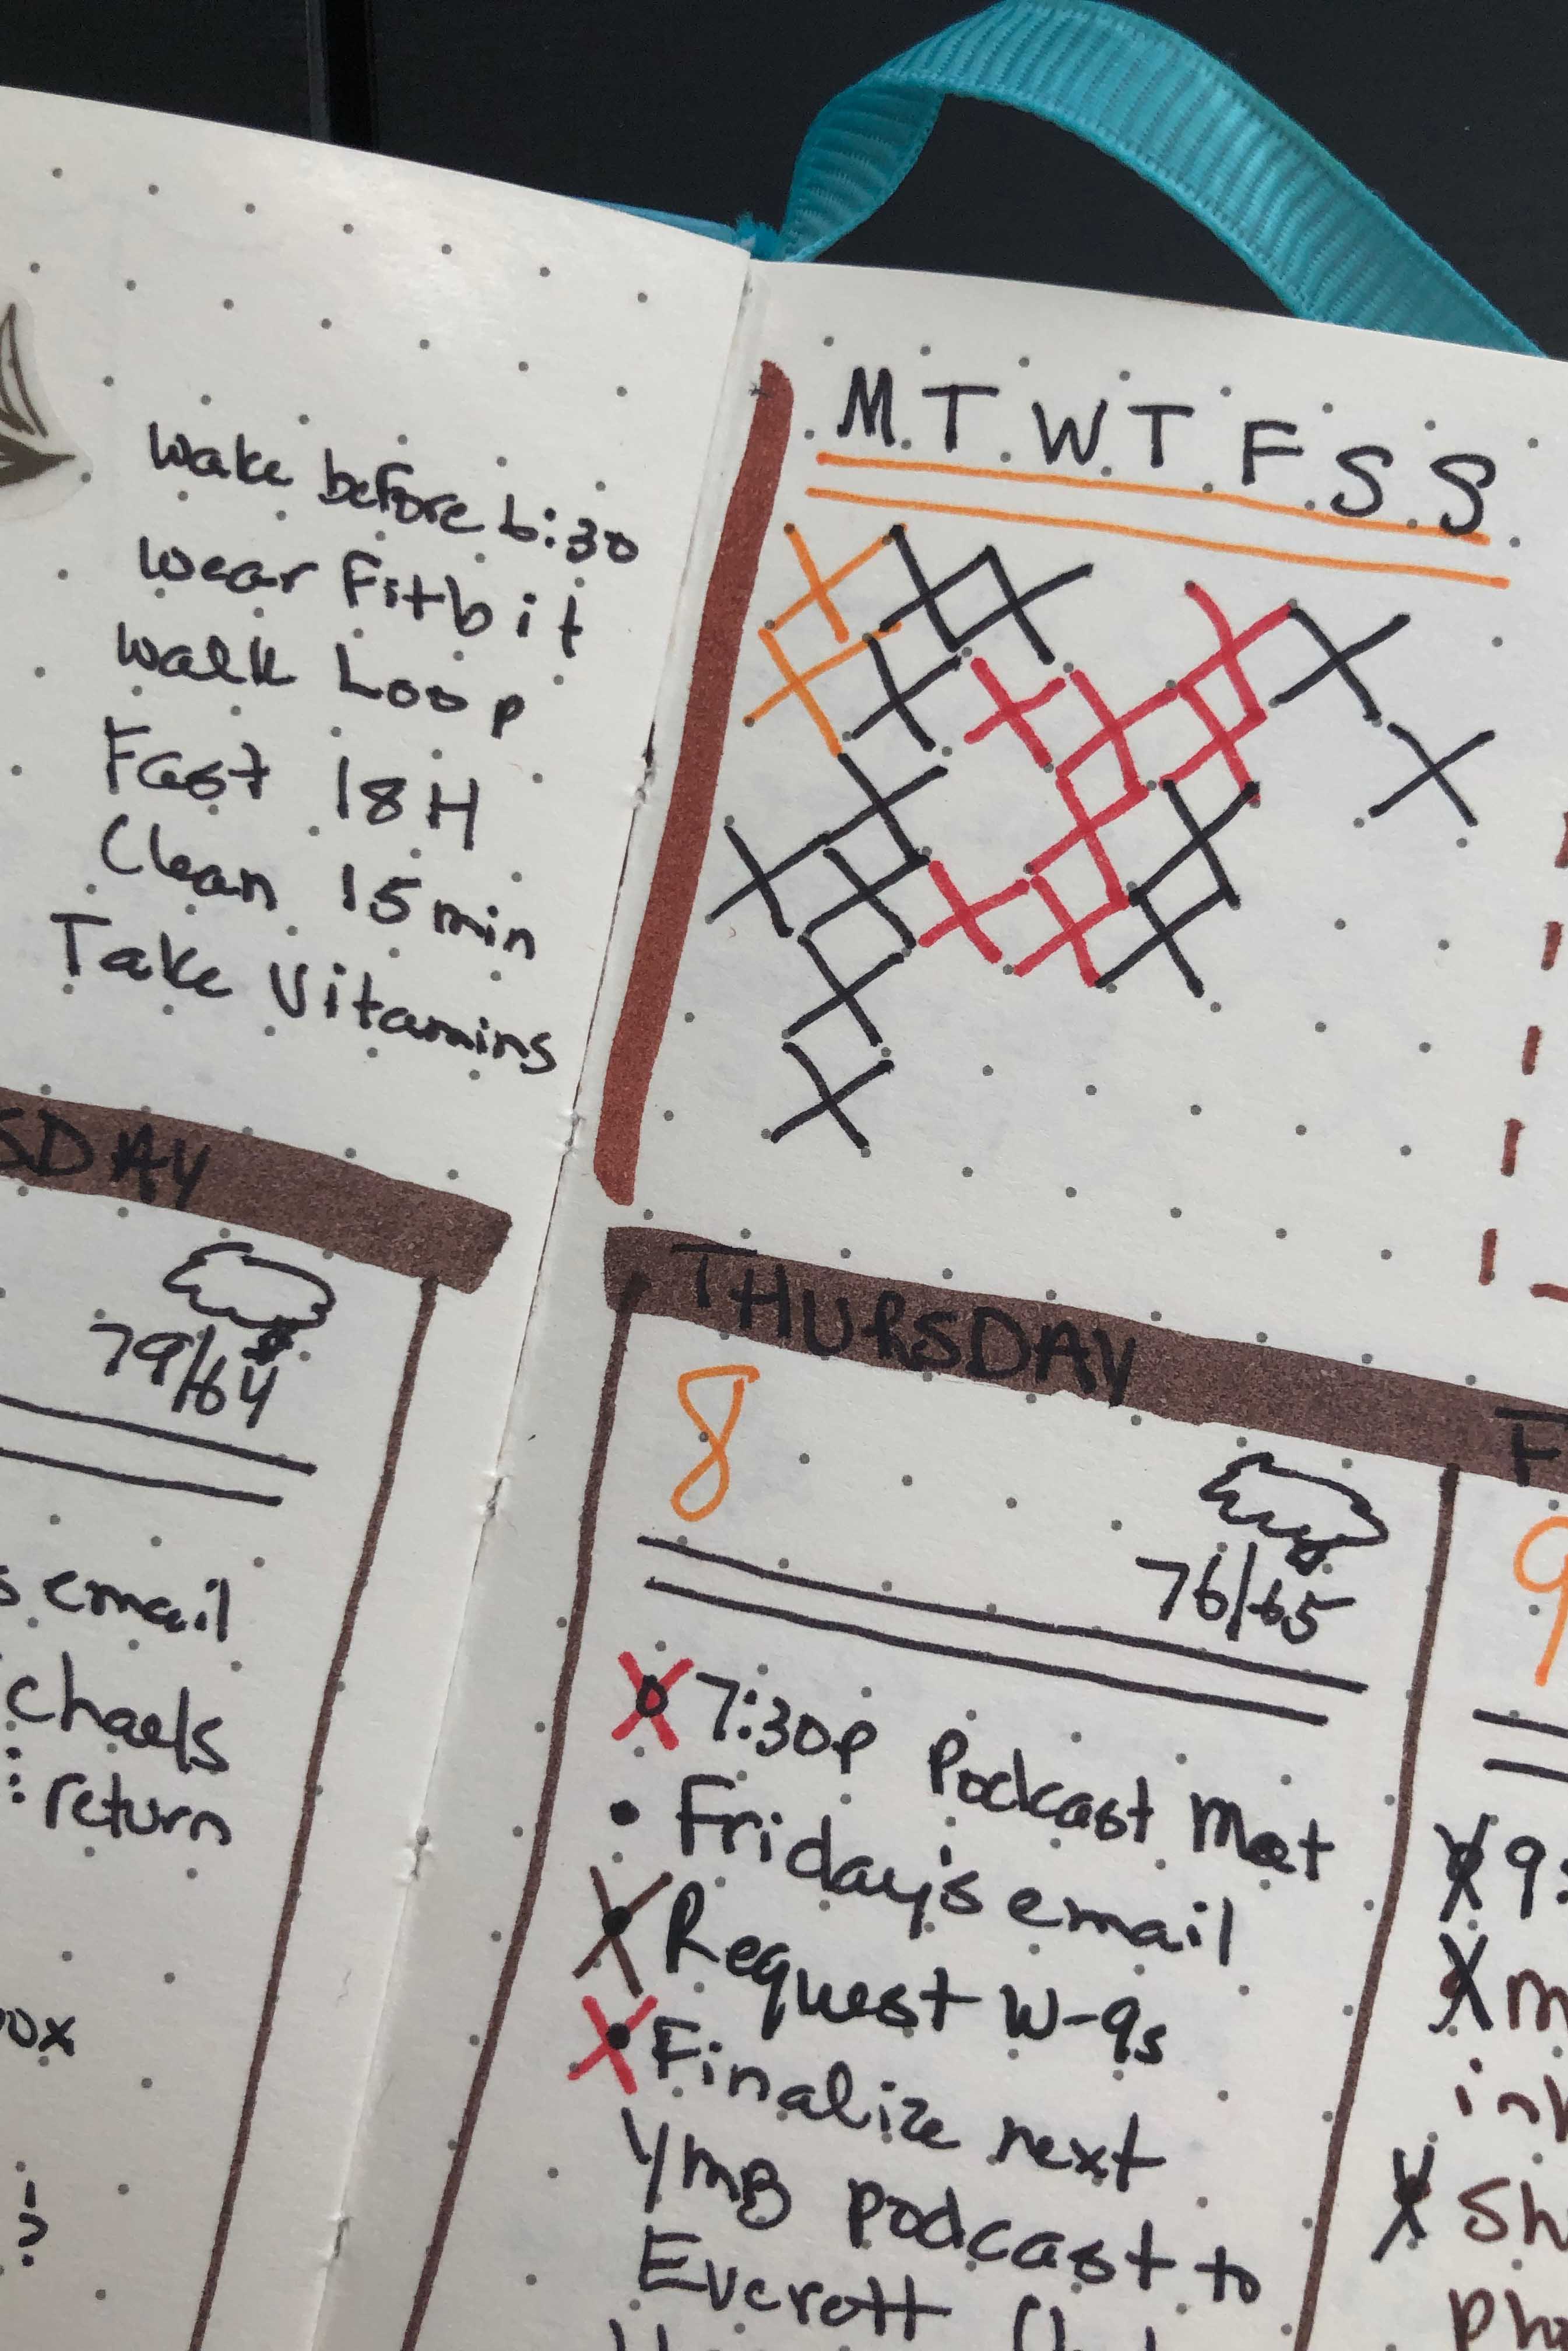 wake before 6:30
wear Fitbit
walk Loop
Fast 18H
Clean 15min
Take Vitamins
M T W T F S S
SDAY
79/64
s email
chaels
: return
ox
?
THURSDAY
8
76/65
7:30p Podcast Meet
• Friday's email
Request W-9s
Finalize next
YMB podcast to
Everett
F
9
9:
m
in
Sh
pho